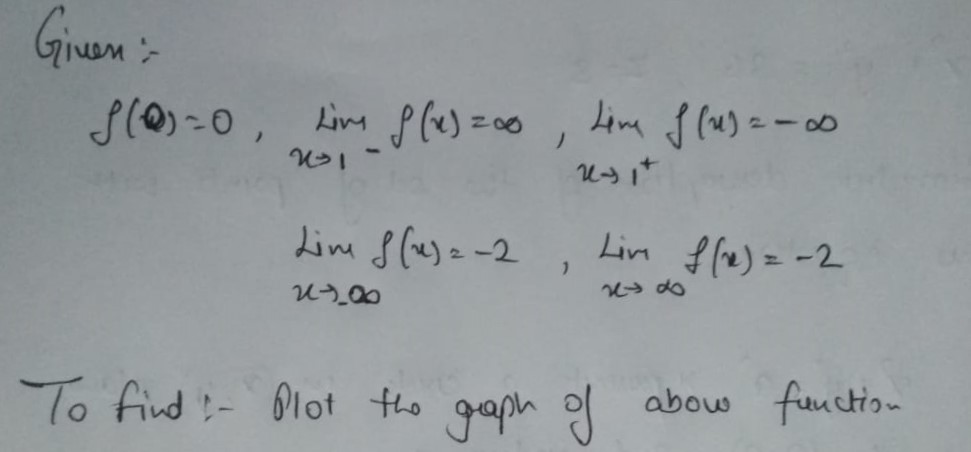 Given :-
f(0) = 0 , Lim x→1⁻ f(x) = ∞ , Lim x→1⁺ f(x) = -∞
Lim x→-∞ f(x) = -2 , Lim x→∞ f(x) = -2
To find :- Plot the graph of above function